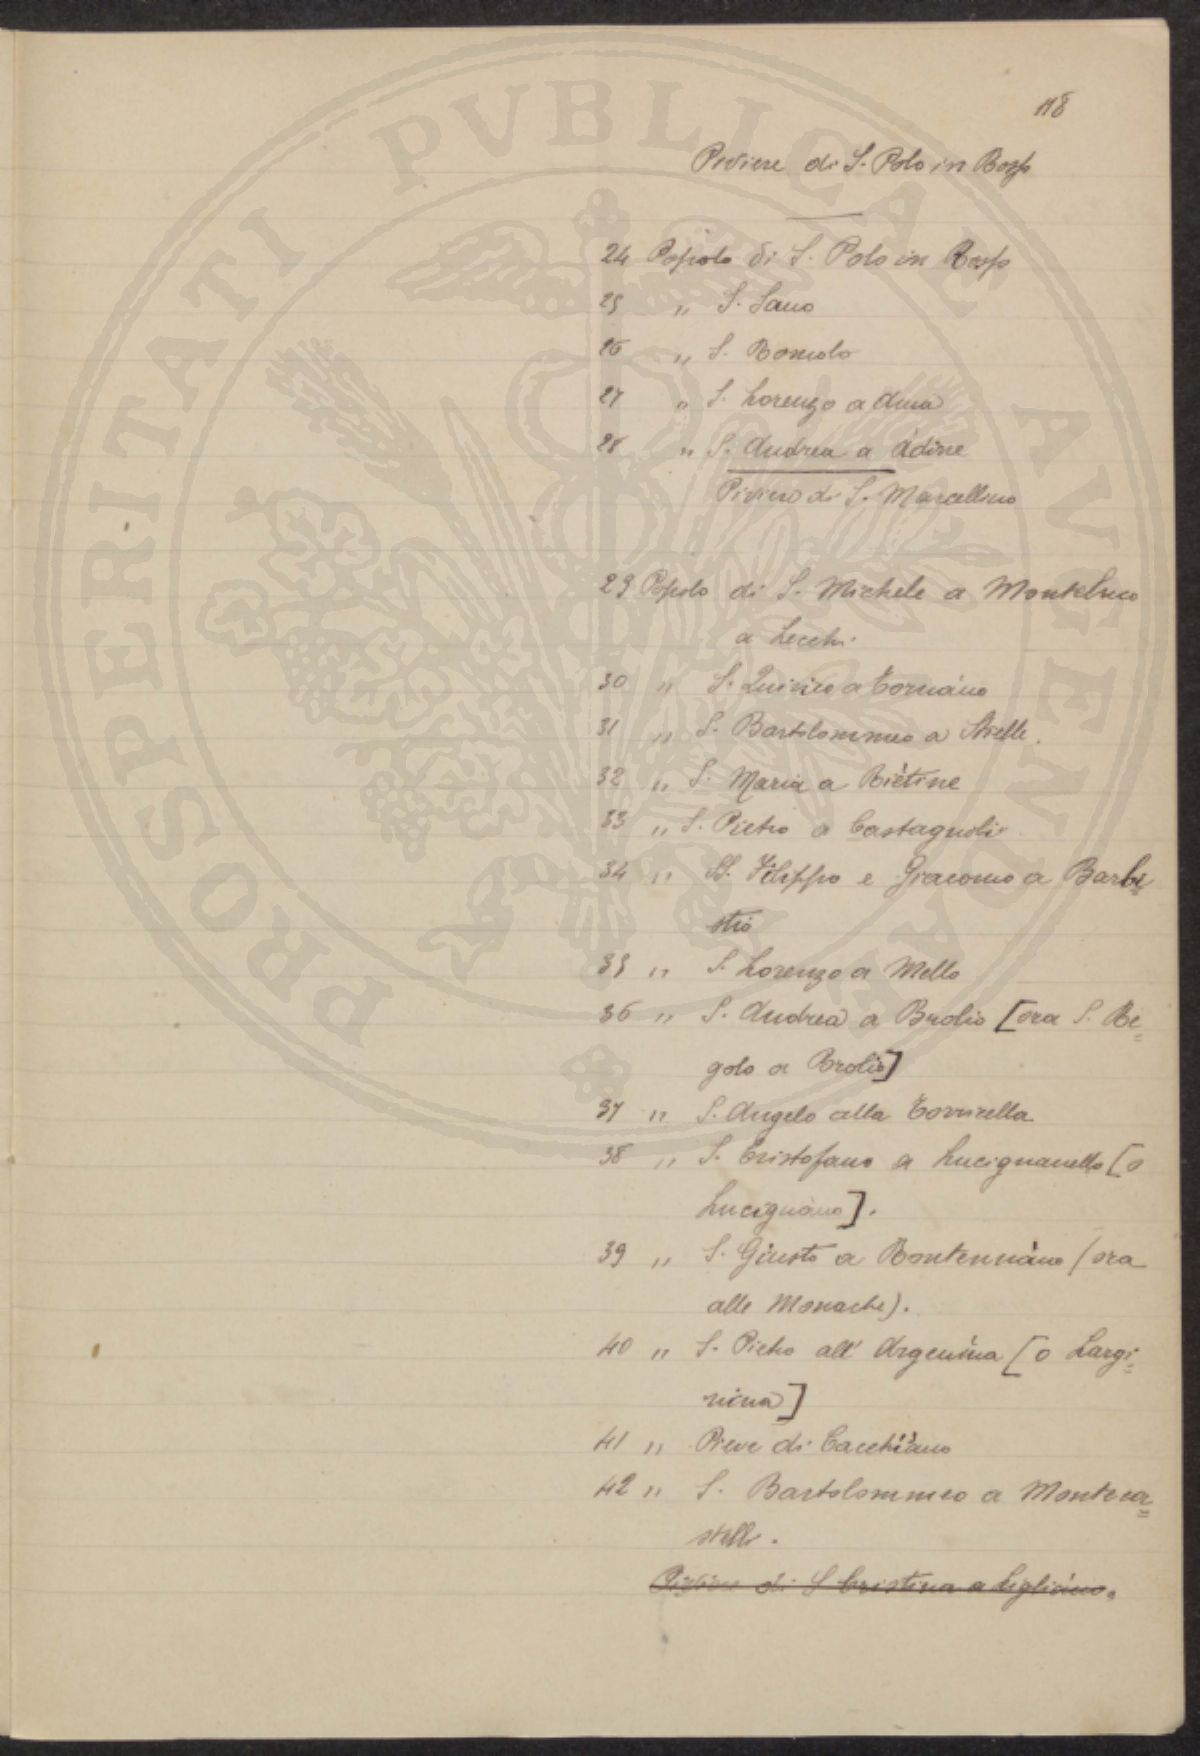 118
Piviere di S. Polo in Rosso
24 Popolo di S. Polo in Rosso
25 " S. Sano
26 " S. Romolo
27 " S. Lorenzo a Ama
28 " S. Andrea a Àdine
Piviere di S. Marcellino
29 Popolo di S. Michele a Monteluco
a Lecchi.
30 " S. Quirico a Tornàno
31 " S. Bartolommeo a Strelle.
32 " S. Maria a Riètine
33 " S. Pietro a Castagnoli
34 " SS. Filippo e Giacomo a Barbi=
stio
35 " S. Lorenzo a Mello
36 " S. Andrea a Brolio [ora S. Re=
golo a Brolio]
37 " S. Angelo alla Torricella
38 " S. Cristofano a Lucignanello [o
Lucignàno].
39 " S. Giusto a Rontennàno (ora
alle Monache).
40 " S. Pietro all' Argenina [o Largi=
nina]
41 " Pieve di Cacchiàno
42 " S. Bartolommeo a Monteca=
stelli.
Piviere di S Cristina a Ligliàno.
PROSPERITATI PVBLICAE AVGENDAE